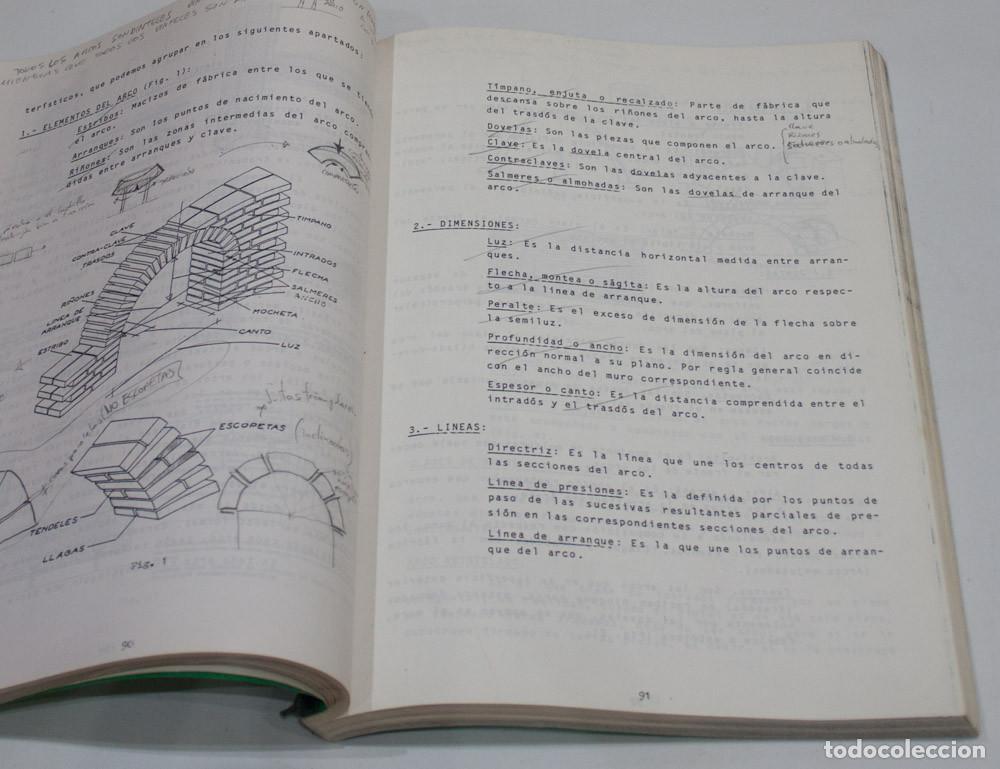 TODOS LOS ARCOS SON DINTELES
MIENTRAS QUE TODOS LOS
terísticos, que podemos agrupar en los siguientes apartados:
1.- ELEMENTOS DEL ARCO (Fig. 1):
Estribos: Macizos de fábrica entre los que se
el arco.
Arranques: Son los puntos de nacimiento del arco.
Riñones: Son las zonas intermedias del arco
didas entre arranques y clave.
CLAVE
CONTRA-CLAVE
TRASDOS
RIÑONES
LINEA DE
ARRANQUE
ESTRIBO
TIMPANO
INTRADOS
FLECHA
SALMERES
ANCHO
MOCHETA
CANTO
LUZ
(NO ESCOPETAS)
ESCOPETAS
TENDELES
LLAGAS
Fig. 1
90
Tímpano, enjuta o recalzado: Parte de fábrica que
descansa sobre los riñones del arco, hasta la altura
del trasdós de la clave.
Dovelas: Son las piezas que componen el arco.
Clave
Riñones
Clave: Es la dovela central del arco.
Contreclaves: Son las dovelas adyacentes a la clave.
Salmeres o almohadas: Son las dovelas de arranque del
arco.
2.- DIMENSIONES:
Luz: Es la distancia horizontal medida entre arran-
ques.
Flecha, montea o ságita: Es la altura del arco respec-
to a la línea de arranque.
Peralte: Es el exceso de dimensión de la flecha sobre
la semiluz.
Profundidad o ancho: Es la dimensión del arco en di-
rección normal a su plano. Por regla general coincide
con el ancho del muro correspondiente.
Espesor o canto: Es la distancia comprendida entre el
intradós y el trasdós del arco.
3.- LINEAS:
Directriz: Es la línea que une los centros de todas
las secciones del arco.
Línea de presiones: Es la definida por los puntos de
paso de las sucesivas resultantes parciales de pre-
sión en las correspondientes secciones del arco.
Línea de arranque: Es la que une los puntos de arran-
que del arco.
91
todocoleccion.net